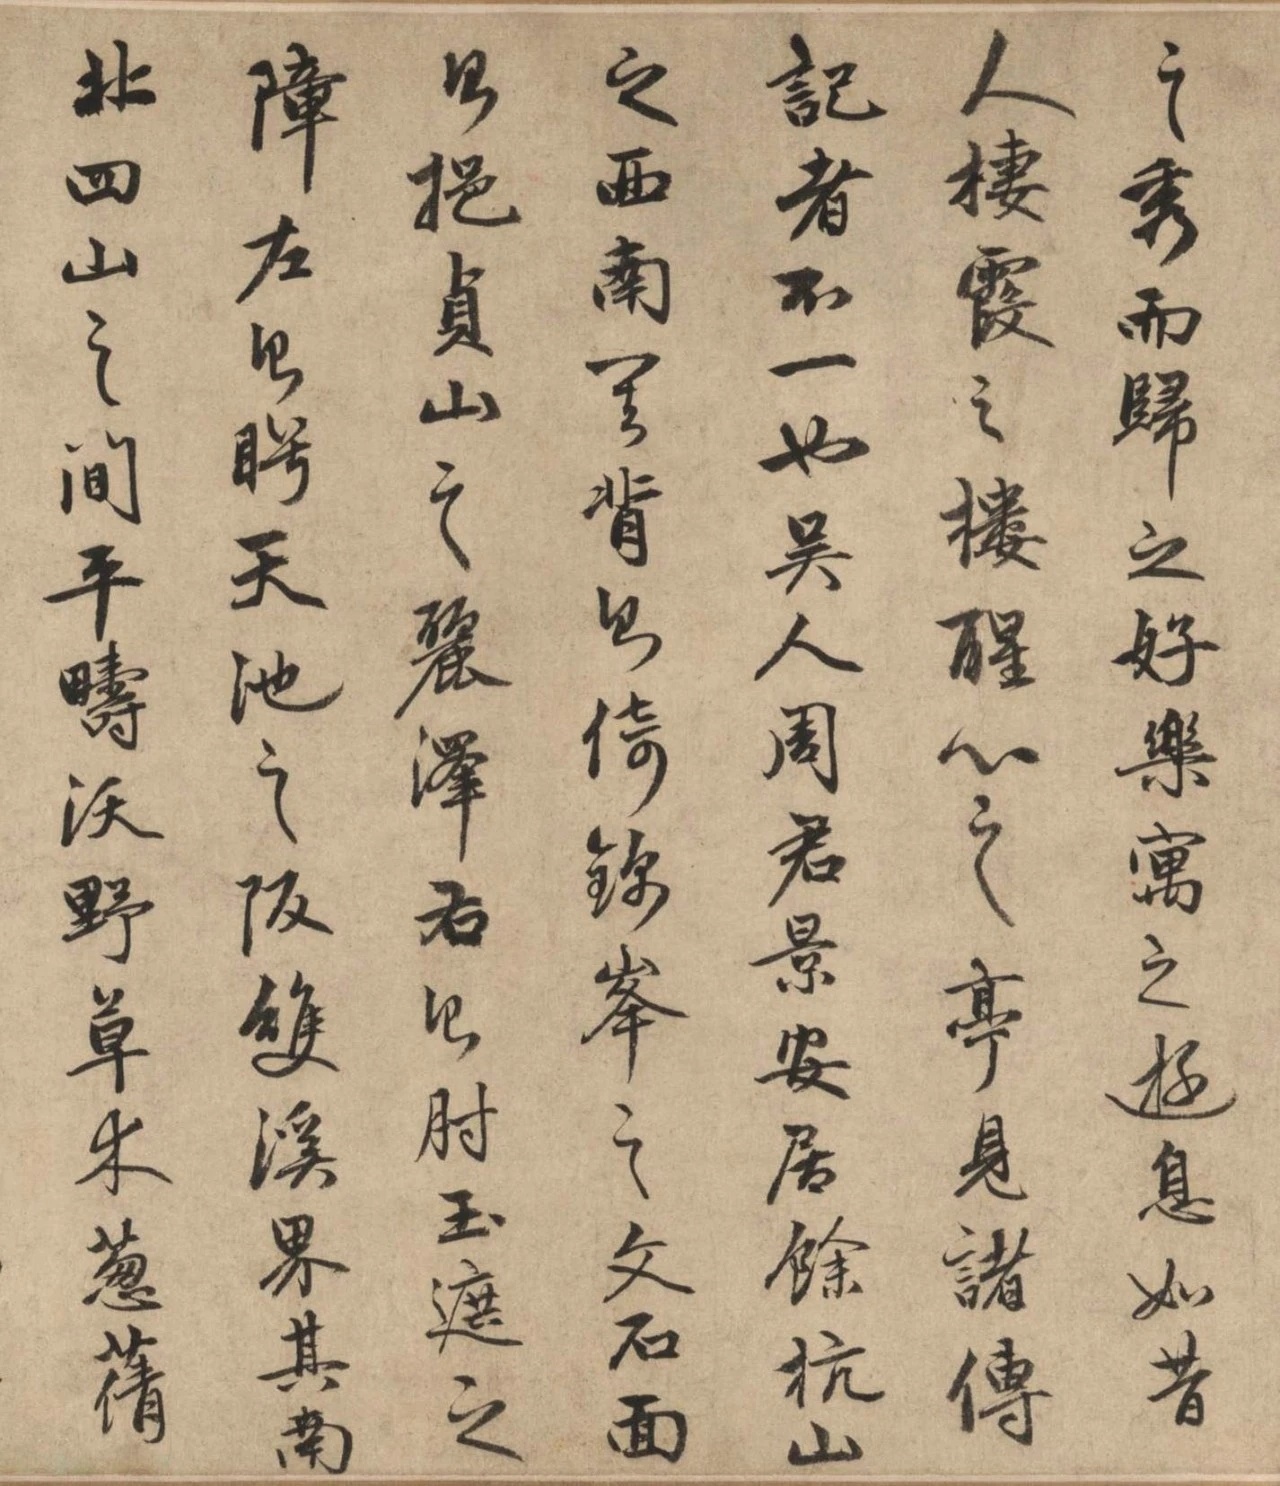 之秀而歸之好樂寓之遊息如昔
人棲霞之樓醒心之亭見諸傳
記者不一也吳人周君景安居餘杭山
之西南焉背則倚錦峯之文石面
則挹貞山之麗澤右則肘玉遮之
障左則盻天池之阪雙溪界其南
北四山之間平疇沃野草木葱蒨